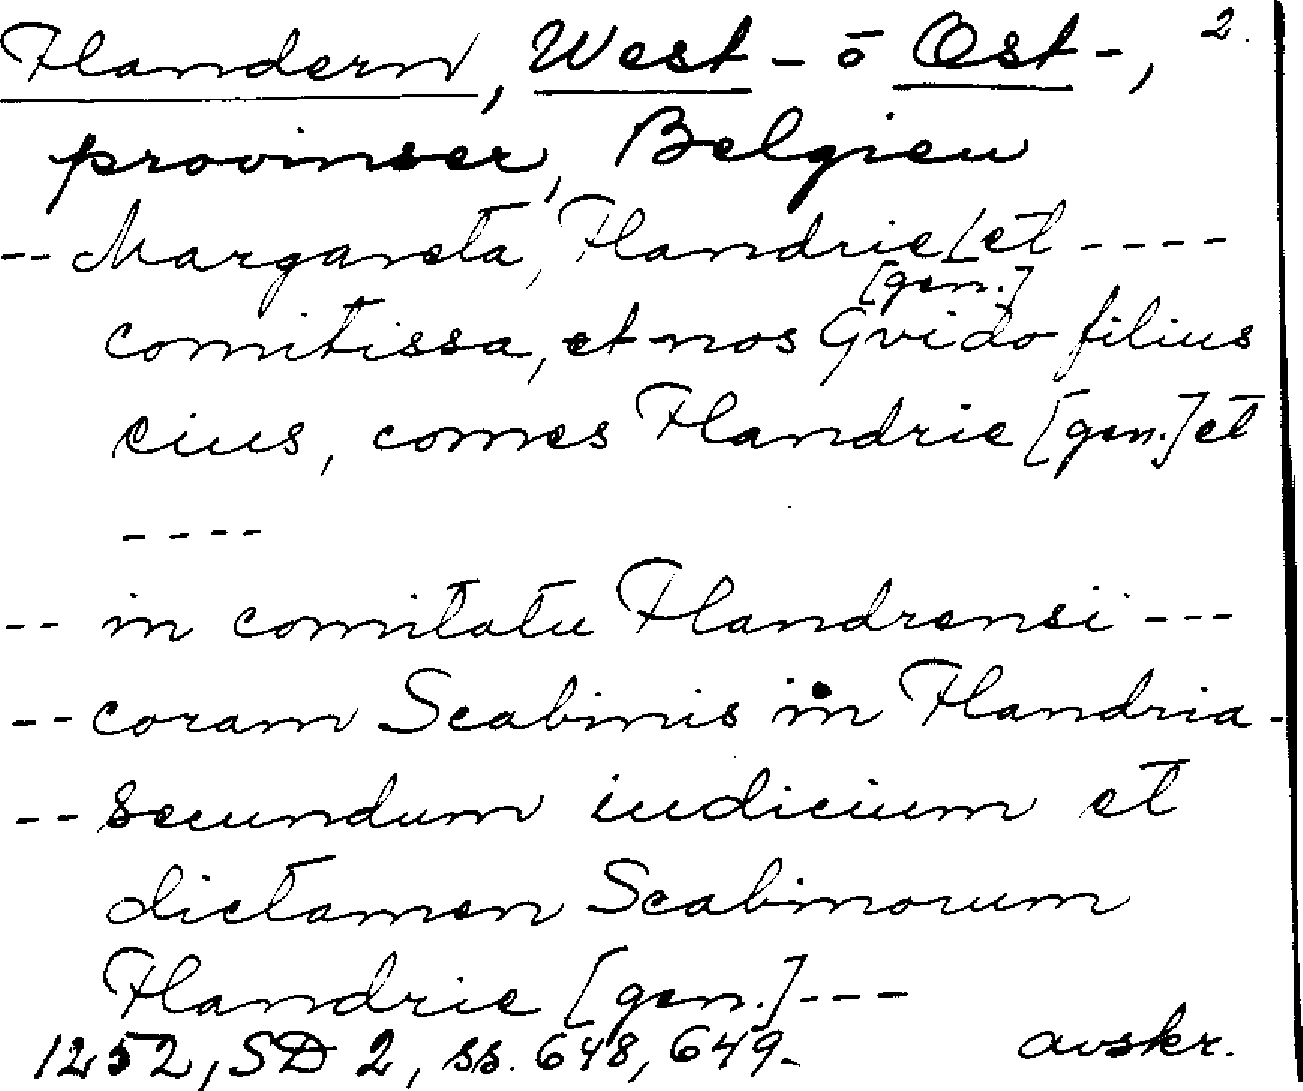 Flandern, West- o Öst-, 2.
provinser, Belgien
-- Margareta, Flandrie [et ----
[gen.]
comitissa, et nos Gvido filius
eius, comes Flandrie [gen.] et
----
-- in comitatu Flandrensi ---
-- coram Scabinis in Flandria -
-- secundum iudicium et
dictamen Scabinorum
Flandrie [gen.] ---
1252, SD 2, ss. 648, 649. avskr.